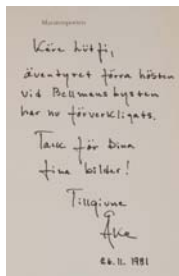 Käre Lütfi,
äventyret förra hösten
vid Bellmansbysten
har nu förverkligats.
Tack för Dina
fina bilder!
Tillgivne
Åke
26.11.1981